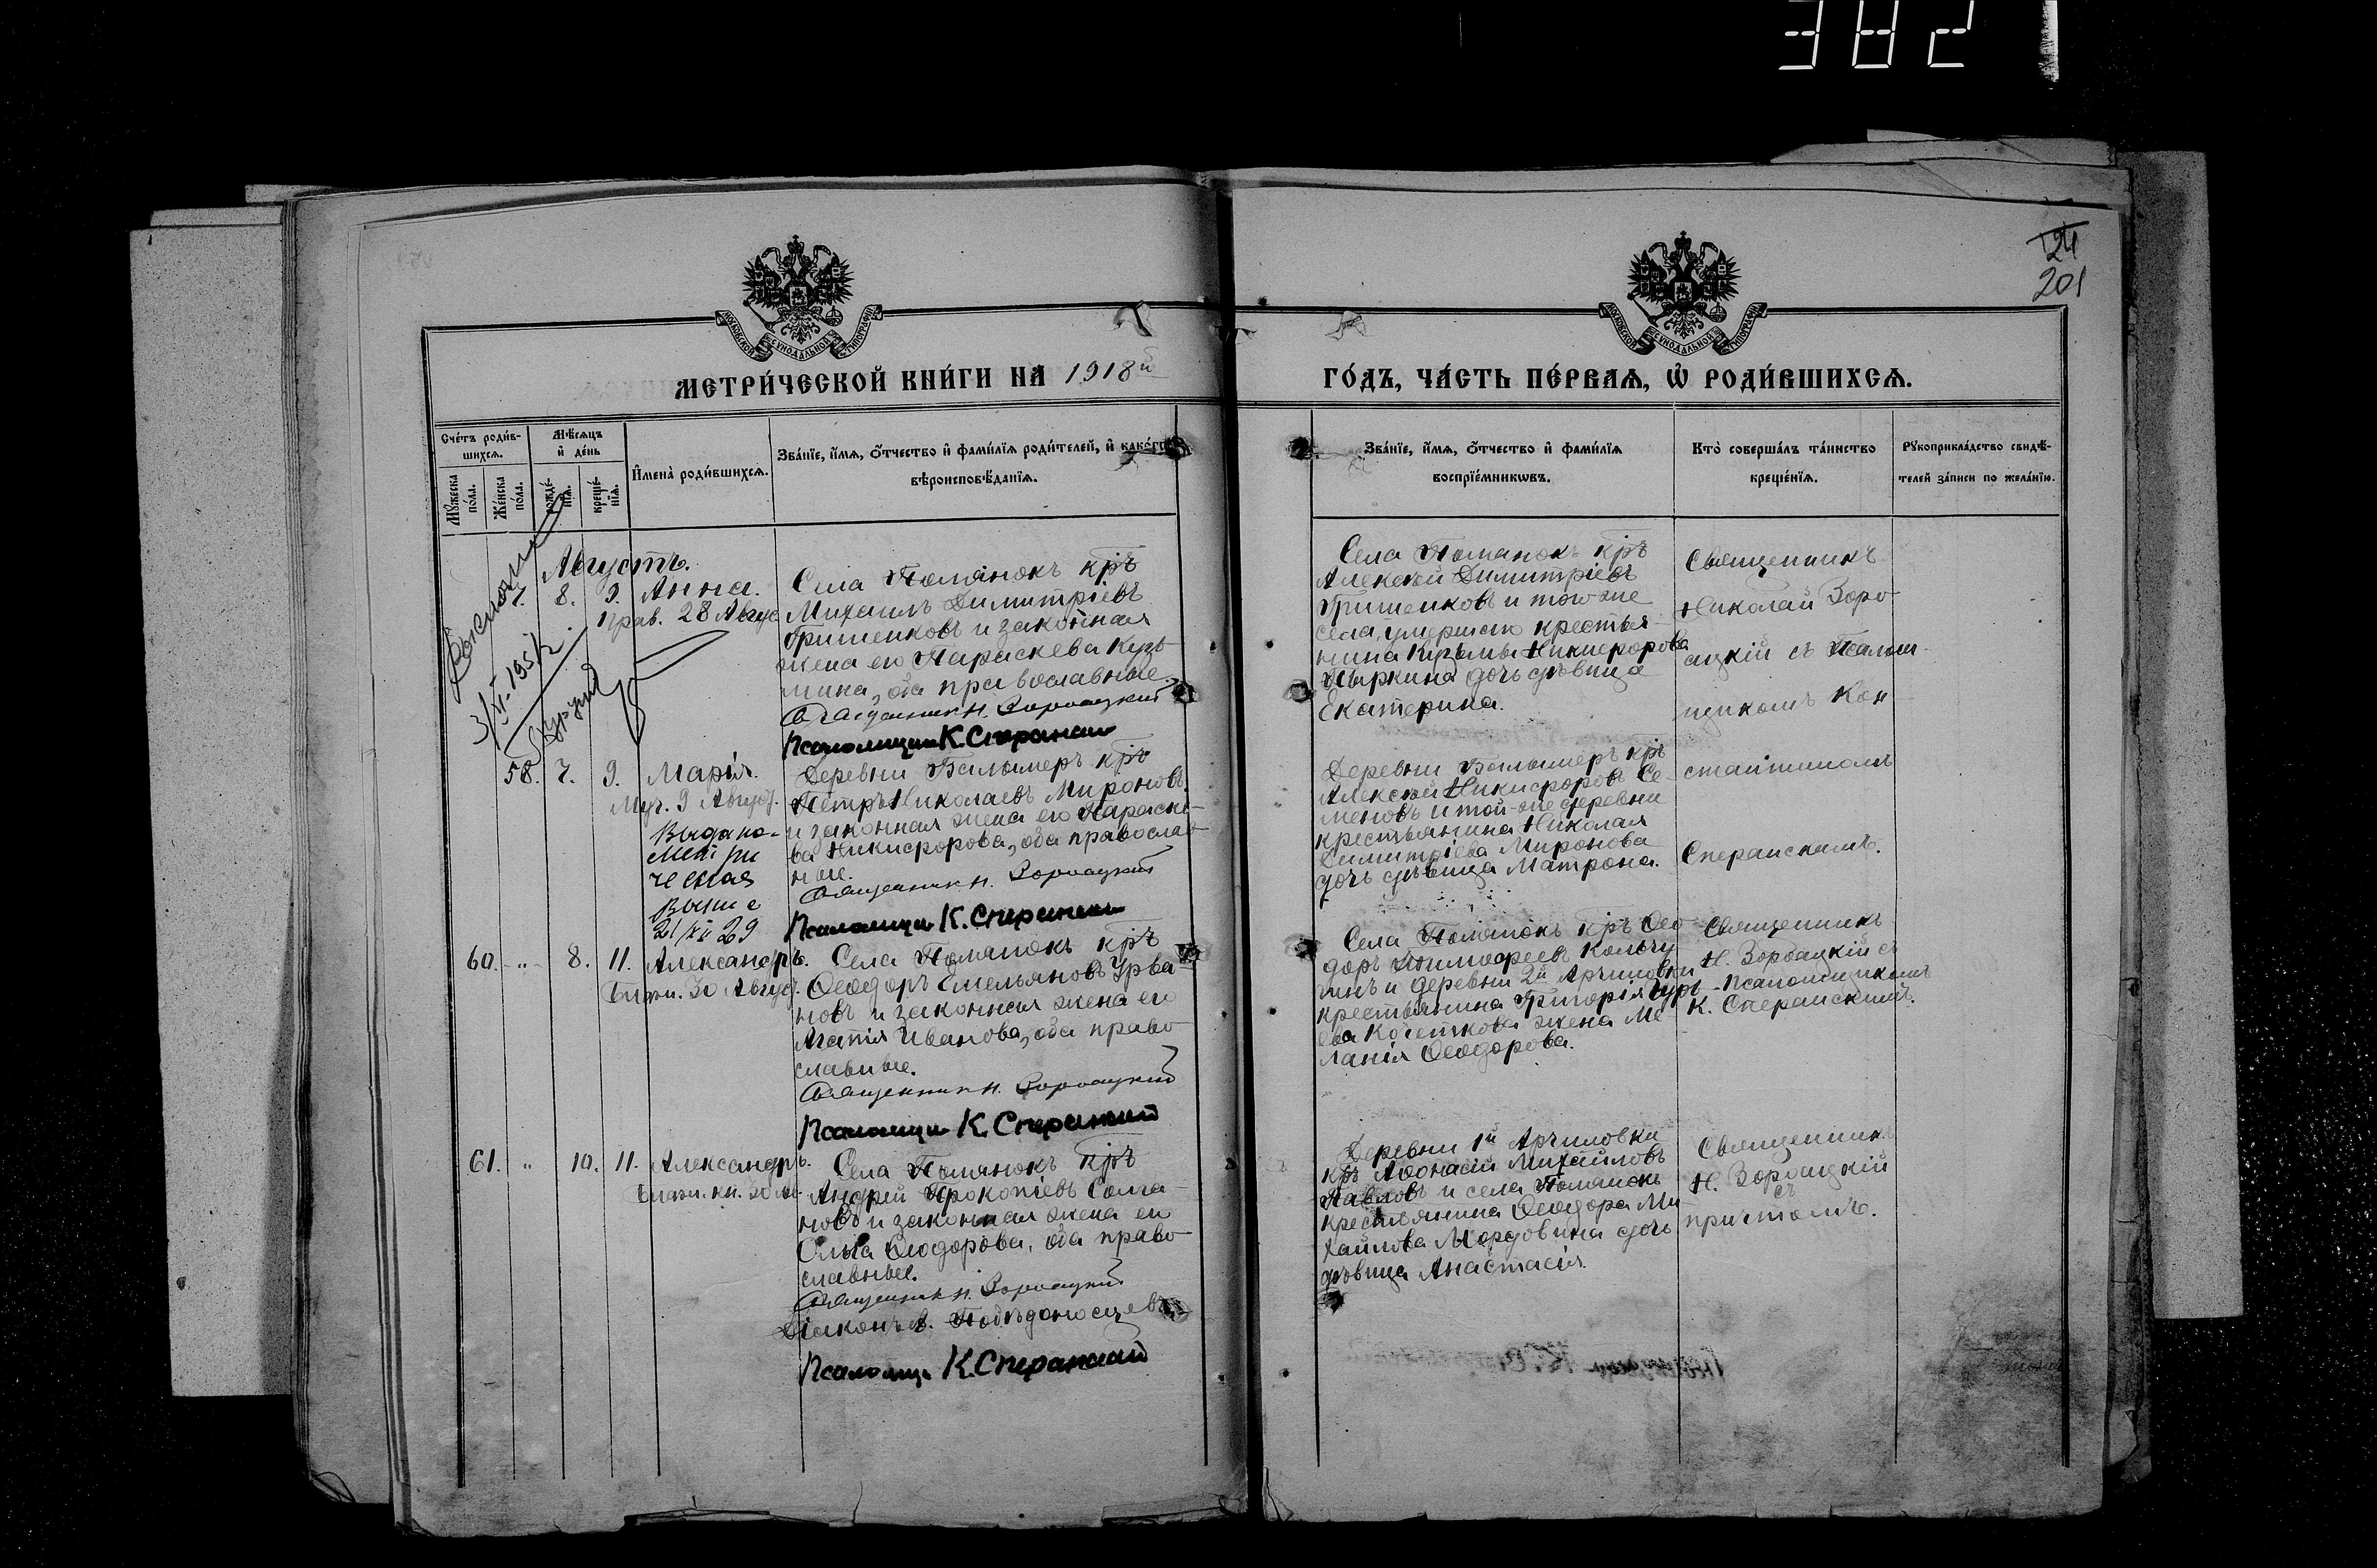 3821
24
201
МОСКОВСКОЙ СѴНОДАЛЬНОЙ ТИПОГРАФІИ
МОСКОВСКОЙ СѴНОДАЛЬНОЙ ТИПОГРАФІИ
МЕТРИ́ЧЕСКОЙ КНИ́ГИ НА 1918й
ГО́ДЪ, ЧА́СТЬ ПЕ́РВАѦ, Ѡ҆ РОДИ́ВШИХСѦ.
Сче́тъ роди́в-
шихсѧ.
Мꙋ́жеска по́ла.
Же́нска по́ла.
Мѣ́сѧцъ
и҆ де́нь
рожде́-
нїѧ.
креще́-
нїѧ.
И҆мена̀ роди́вшихсѧ.
Зва́нїе, и҆́мѧ, ѻ҆́тчество и҆ фами́лїѧ роди́телей, и҆ како́гѡ
вѣроисповѣ́данїѧ.
Зва́нїе, и҆́мѧ, ѻ҆́тчество и҆ фами́лїѧ
воспрїе́мникѡвъ.
Кто̀ соверша́лъ та́инство
креще́нїѧ.
Рꙋкоприкла́дство свидѣ́-
телей за́писи по жела́нїю.
Августъ.
7. 8. 9. Анна.
прав. 28 Авгус
Села Помянокъ кръ
Михаилъ Димитріевъ
Гришенковъ и законная
жена его Параскева Кузь-
мина, оба православные.
Священникъ Н. Зороацкій
Псаломщик К. Сперанский
Села Помянокъ кръ
Алексѣй Димитріевъ
Гришенковъ и того же
села, умершаго крестья-
нина Кузьмы Никифорова
дочь дѣвица
Екатерина.
Священникъ
Николай Зоро-
ацкій съ Псалом-
щикомъ Кон-
стантиномъ
Сперанскимъ.
58. 7. 9. Марія.
Муч. 9 Август.
Выдано
метри
ческая
выпис
21/XII 29
Деревни кръ
Петръ Николаевъ Мироновъ
и законная жена его Параске-
ва Никифорова, оба православ-
ные.
Священникъ Н. Зороацкій
Псаломщик К. Сперанский
Деревни кръ
Алексѣй Никифоровъ Се-
меновъ и той-же деревни
крестьянина Николая
Димитріева Миронова
дочь дѣвица Матрона.
60. „ 8. 11. Александръ.
Благ. 30 Август.
Села Помянокъ кръ
Ѳеодоръ Емельяновъ Урва-
новъ и законная жена его
Агаѳія Иванова, оба право-
славные.
Священникъ Н. Зороацкій
Псаломщик К. Сперанский
Села Помянокъ кръ Ѳео-
доръ Тимоѳеевъ Кольчу-
гинъ и деревни 2й Арчиловки
крестьянина Григорія Гурь-
ева Кочеткова жена Ме-
ланія Ѳеодорова.
Священникъ
Н. Зороацкій съ
Псаломщикомъ
К. Сперанскимъ.
61. „ 10. 11. Александръ.
Благ. кн. 30 Ав.
Села Помянокъ кръ
Андрей Прокопіевъ Сома-
новъ и законная жена его
Ольга Ѳеодорова, оба право-
славные.
Священникъ Н. Зороацкій
Діаконъ В. Побѣдоносцевъ
Псаломщ. К. Сперанский
Деревни 1й Арчиловки
кръ Аѳонасій Михайловъ
Павловъ и села Помянокъ
крестьянина Ѳеодора Ми-
хайлова Мордовина дочь
дѣвица Анастасія.
Священникъ
Н. Зороацкій
съ
причтомъ.